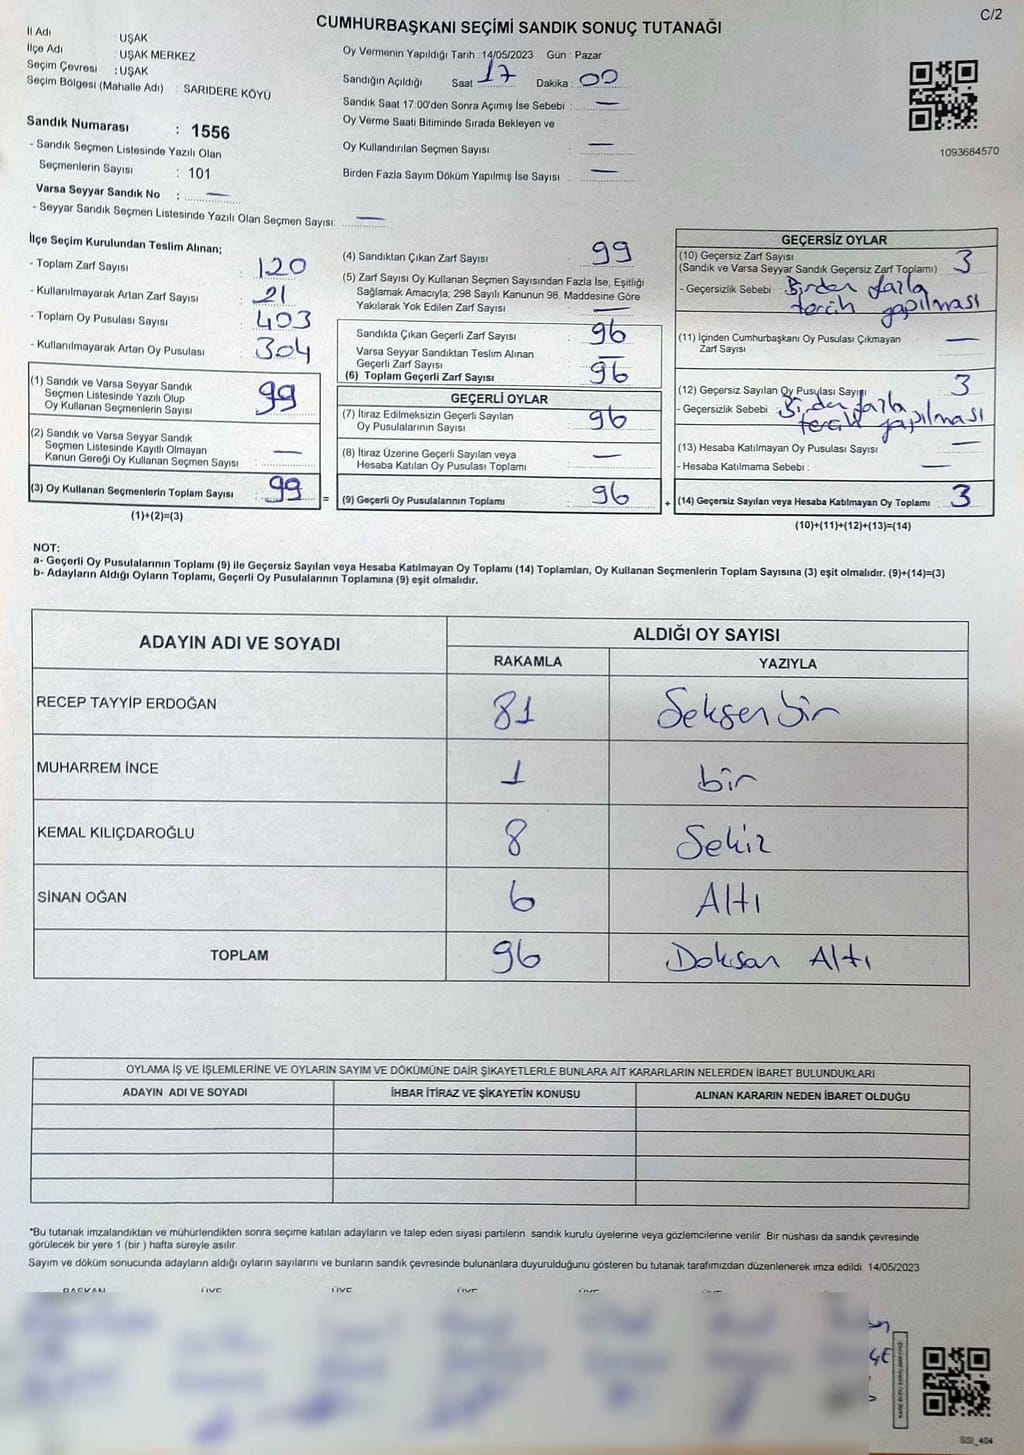 C/2
CUMHURBAŞKANI SEÇİMİ SANDIK SONUÇ TUTANAĞI
İl Adı : UŞAK
İlçe Adı : UŞAK MERKEZ
Seçim Çevresi : UŞAK
Seçim Bölgesi (Mahalle Adı) : SARIDERE KÖYÜ
Sandık Numarası : 1556
- Sandık Seçmen Listesinde Yazılı Olan
Seçmenlerin Sayısı : 101
Varsa Seyyar Sandık No : —
- Seyyar Sandık Seçmen Listesinde Yazılı Olan Seçmen Sayısı: —
Oy Vermenin Yapıldığı Tarih : 14/05/2023 Gün : Pazar
Sandığın Açıldığı Saat 17 Dakika : 00
Sandık Saat 17:00'den Sonra Açımış İse Sebebi : —
Oy Verme Saati Bitiminde Sırada Bekleyen ve
Oy Kullandırılan Seçmen Sayısı : —
Birden Fazla Sayım Döküm Yapılmış İse Sayısı : —
1093684570
İlçe Seçim Kurulundan Teslim Alınan;
- Toplam Zarf Sayısı : 120
- Kullanılmayarak Artan Zarf Sayısı : 21
- Toplam Oy Pusulası Sayısı : 403
- Kullanılmayarak Artan Oy Pusulası : 304
(1) Sandık ve Varsa Seyyar Sandık
Seçmen Listesinde Yazılı Olup
Oy Kullanan Seçmenlerin Sayısı : 99
(2) Sandık ve Varsa Seyyar Sandık
Seçmen Listesinde Kayıtlı Olmayan
Kanun Gereği Oy Kullanan Seçmen Sayısı : —
(3) Oy Kullanan Seçmenlerin Toplam Sayısı : 99 =
(1)+(2)=(3)
(4) Sandıktan Çıkan Zarf Sayısı : 99
(5) Zarf Sayısı Oy Kullanan Seçmen Sayısından Fazla İse, Eşitliği
Sağlamak Amacıyla; 298 Sayılı Kanunun 98. Maddesine Göre
Yakılarak Yok Edilen Zarf Sayısı : —
Sandıkta Çıkan Geçerli Zarf Sayısı : 96
Varsa Seyyar Sandıktan Teslim Alınan
Geçerli Zarf Sayısı : —
(6) Toplam Geçerli Zarf Sayısı : 96
GEÇERLİ OYLAR
(7) İtiraz Edilmeksizin Geçerli Sayılan
Oy Pusulalarının Sayısı : 96
(8) İtiraz Üzerine Geçerli Sayılan veya
Hesaba Katılan Oy Pusulası Toplamı : —
(9) Geçerli Oy Pusulalarının Toplamı : 96 +
GEÇERSİZ OYLAR
(10) Geçersiz Zarf Sayısı
(Sandık ve Varsa Seyyar Sandık Geçersiz Zarf Toplamı) : 3
- Geçersizlik Sebebi : Birden fazla
tercih yapılması
(11) İçinden Cumhurbaşkanı Oy Pusulası Çıkmayan
Zarf Sayısı : —
(12) Geçersiz Sayılan Oy Pusulası Sayısı : 3
- Geçersizlik Sebebi : Birden fazla
tercih yapılması
(13) Hesaba Katılmayan Oy Pusulası Sayısı : —
- Hesaba Katılmama Sebebi : —
(14) Geçersiz Sayılan veya Hesaba Katılmayan Oy Toplamı : 3
(10)+(11)+(12)+(13)=(14)
NOT:
a- Geçerli Oy Pusulalarının Toplamı (9) ile Geçersiz Sayılan veya Hesaba Katılmayan Oy Toplamı (14) Toplamları, Oy Kullanan Seçmenlerin Toplam Sayısına (3) eşit olmalıdır. (9)+(14)=(3)
b- Adayların Aldığı Oyların Toplamı, Geçerli Oy Pusulalarının Toplamına (9) eşit olmalıdır.
ADAYIN ADI VE SOYADI ALDIĞI OY SAYISI
RAKAMLA YAZIYLA
RECEP TAYYİP ERDOĞAN 81 Seksen bir
MUHARREM İNCE 1 bir
KEMAL KILIÇDAROĞLU 8 Sekiz
SİNAN OĞAN 6 Altı
TOPLAM 96 Doksan Altı
OYLAMA İŞ VE İŞLEMLERİNE VE OYLARIN SAYIM VE DÖKÜMÜNE DAİR ŞİKAYETLERLE BUNLARA AİT KARARLARIN NELERDEN İBARET BULUNDUKLARI
ADAYIN ADI VE SOYADI İHBAR İTİRAZ VE ŞİKAYETİN KONUSU ALINAN KARARIN NEDEN İBARET OLDUĞU
*Bu tutanak imzalandıktan ve mühürlendikten sonra seçime katılan adayların ve talep eden siyasi partilerin sandık kurulu üyelerine veya gözlemcilerine verilir. Bir nüshası da sandık çevresinde
görülecek bir yere 1 (bir ) hafta süreyle asılır.
Sayım ve döküm sonucunda adayların aldığı oyların sayılarını ve bunların sandık çevresinde bulunanlara duyurulduğunu gösteren bu tutanak tarafımızdan düzenlenerek imza edildi. 14/05/2023
BAŞKAN ÜYE ÜYE ÜYE ÜYE ÜYE
SSI_404